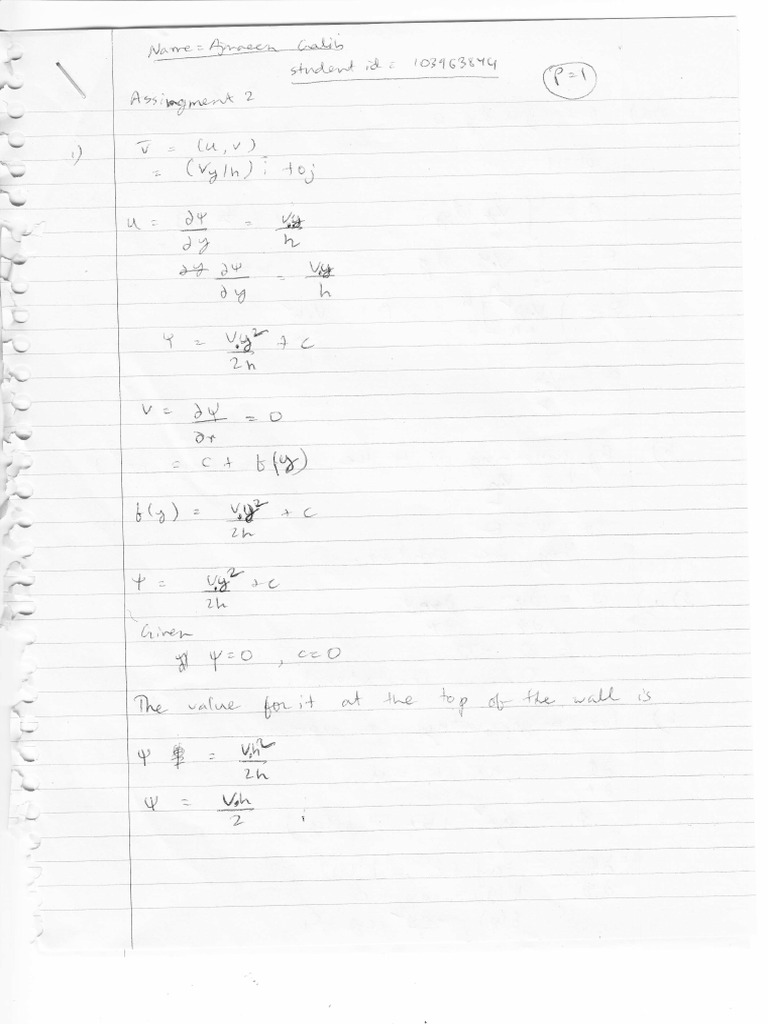 Name = Ajraeen Galib
student id = 103963844
P=1
Assingment 2
1) V̄ = (u, v)
= (Vy/h) i + 0j
u = ∂ψ/∂y = V.y/h
∂ψ/∂y = V.y/h
Ψ = V.y²/2h + c
V = ∂ψ/∂x = 0
= c + f(y)
f(y) = V.y²/2h + c
ψ = V.y²/2h + c
Given
ψ=0 , c=0
The value for it at the top of the wall is
ψ = V.h²/2h
ψ = V.h/2